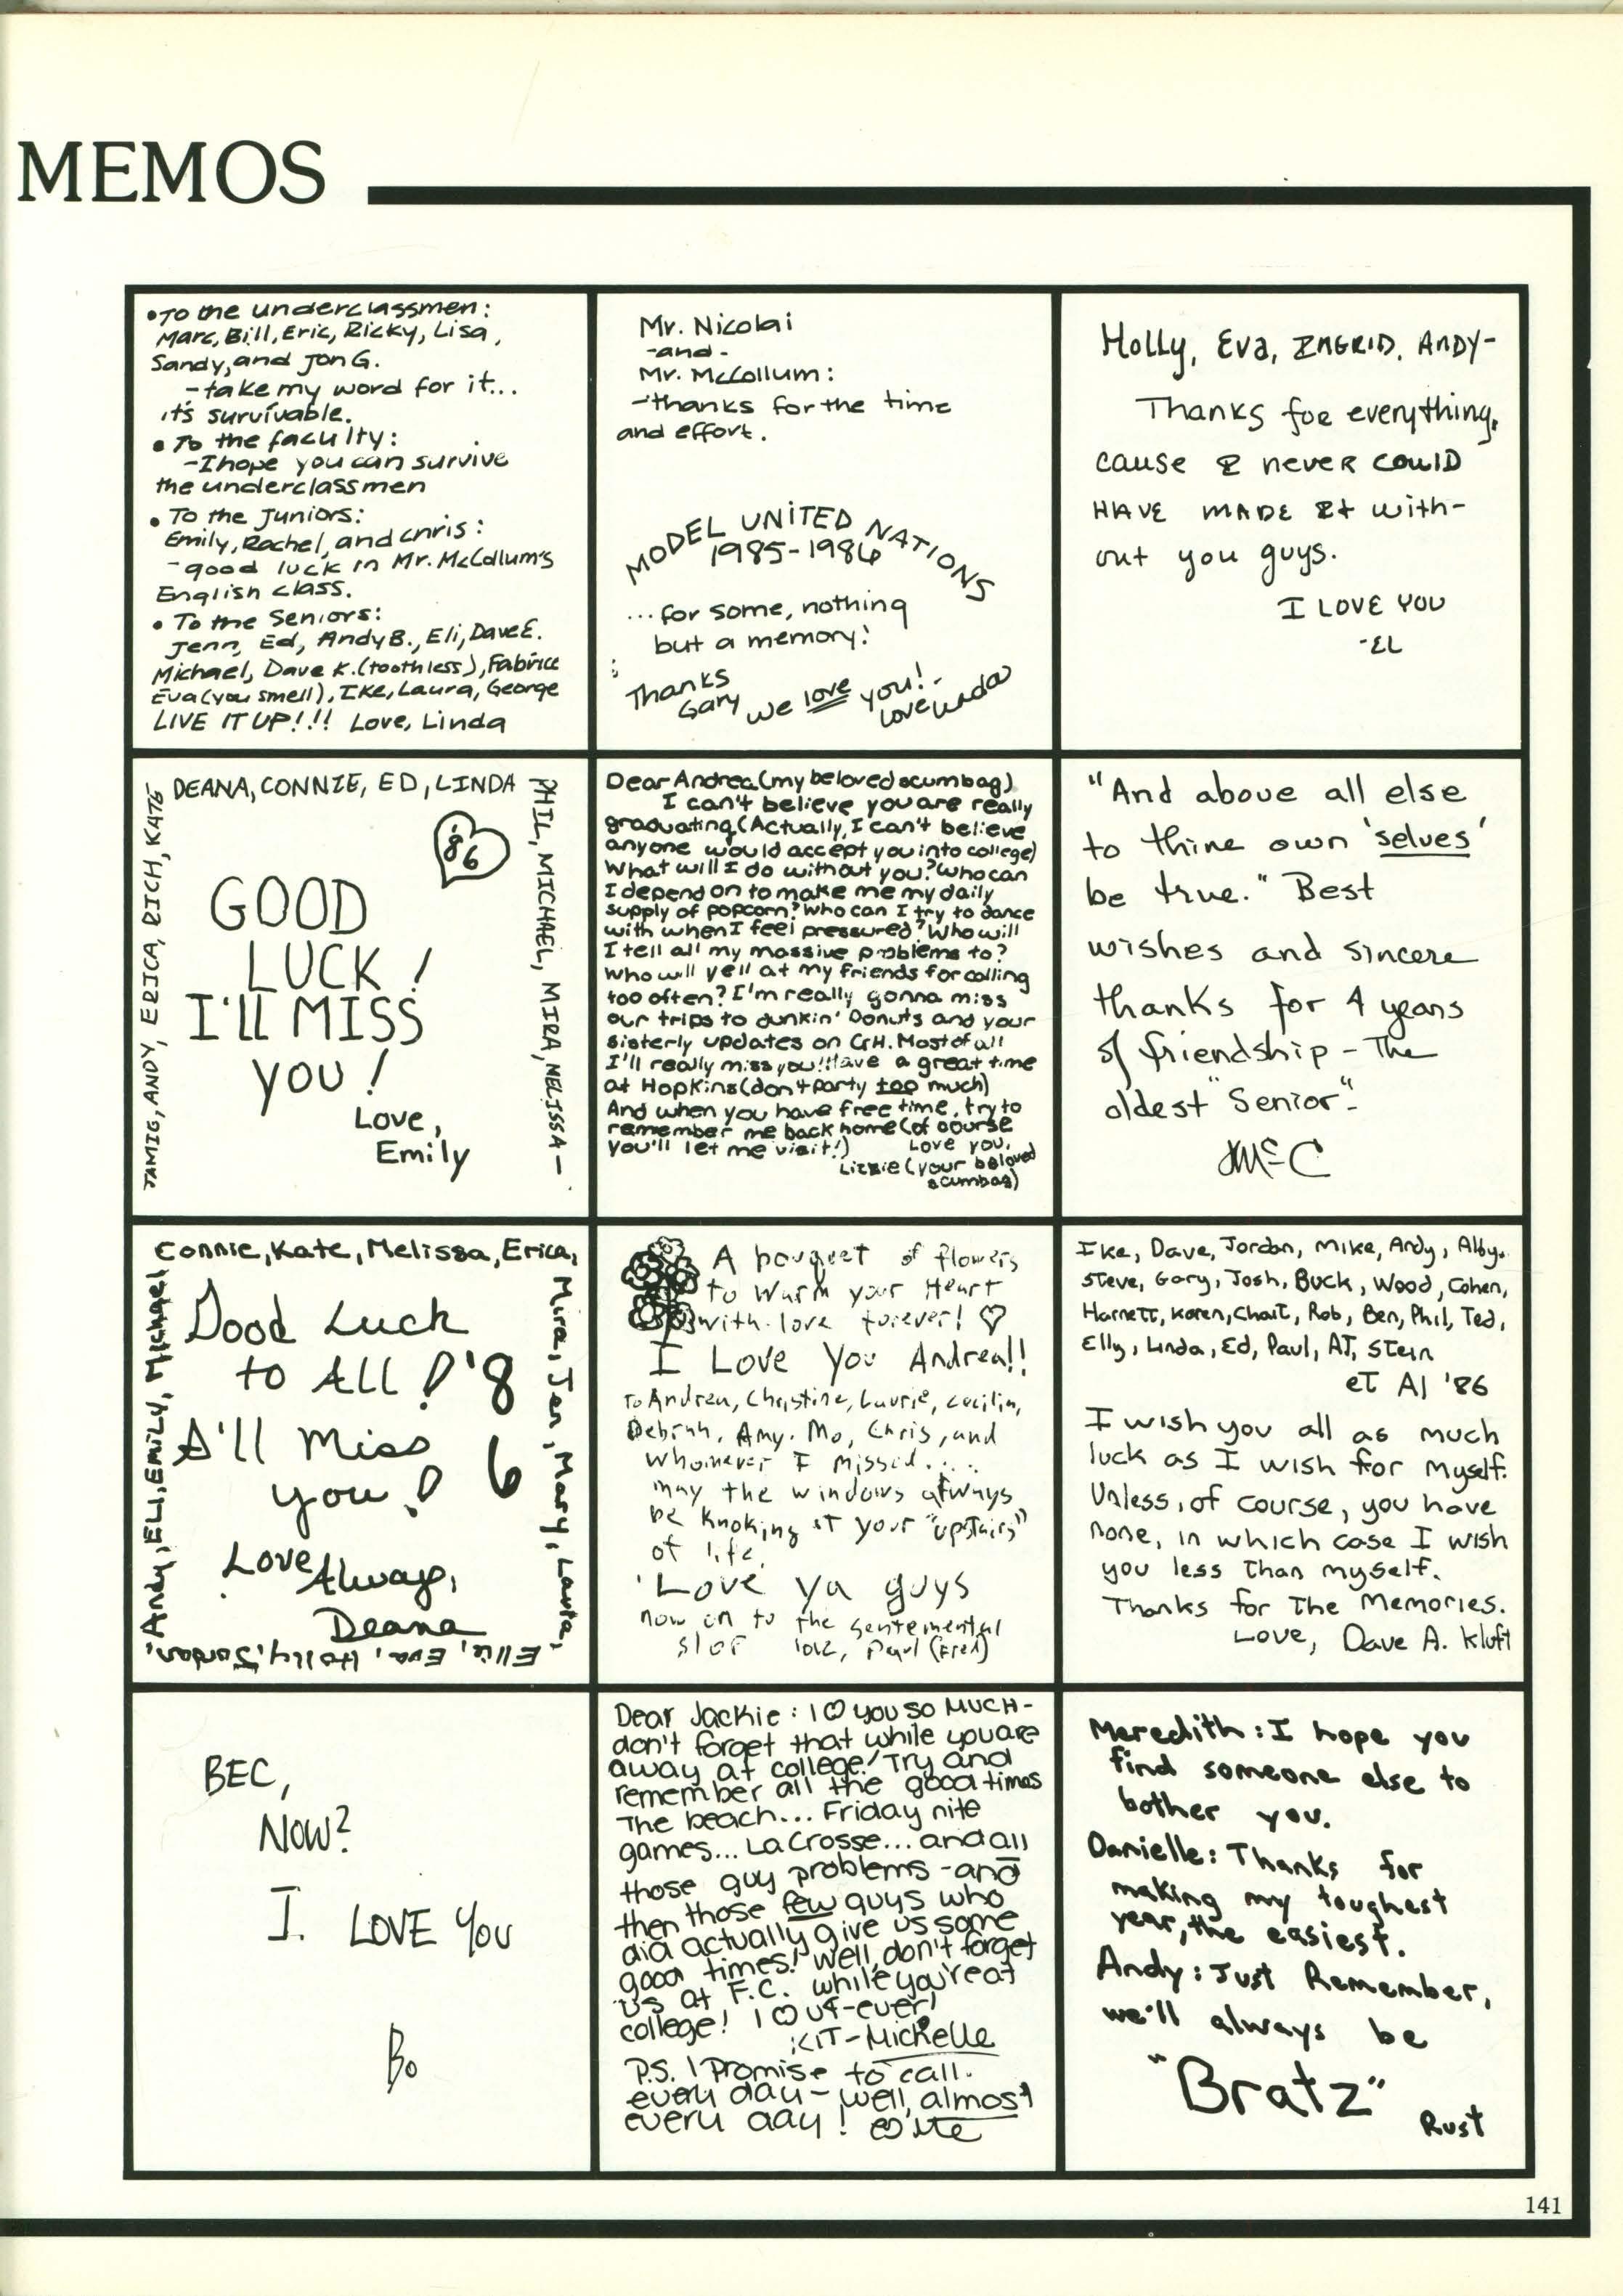 MEMOS
•To the underclassmen:
Marc, Bill, Eric, Ricky, Lisa,
Sandy, and Jon G.
-take my word for it...
it's survivable.
• To the faculty:
-I hope you can survive
the underclassmen
• To the Juniors:
Emily, Rachel, and Chris:
-good luck in Mr. McCollum's
English class.
• To the Seniors:
Jenn, Ed, Andy B., Eli, Dave E.
Michael, Dave K. (toothless), Fabrice
Eva (you smell), Ike, Laura, George
LIVE IT UP!!!! Love, Linda
Mr. Nicolai
-and-
Mr. McCollum:
-thanks for the time
and effort.
MODEL UNITED NATIONS
1985-1986
...for some, nothing
but a memory!
Thanks
Gary we love you!
Love Linda
Holly, Eva, INGRID, ANDY-
Thanks for everything,
cause I never COULD
HAVE MADE It with-
out you guys.
I LOVE YOU
-EL
DEANA, CONNIE, ED, LINDA
PHIL, MICHAEL, MIRA, MELISSA-
TAMIG, ANDY, ERICA, RICH, KATE
'86
GOOD
LUCK!
I'll MISS
YOU!
Love,
Emily
Dear Andrea (my beloved scumbag)
I can't believe you are really
graduating. (Actually, I can't believe
anyone would accept you into college)
What will I do without you? Who can
I depend on to make me my daily
supply of popcorn? Who can I try to dance
with when I feel pressured? Who will
I tell all my massive problems to?
Who will yell at my friends for calling
too often? I'm really gonna miss
our trips to Dunkin' Donuts and your
sisterly updates on GH. Most of all
I'll really miss you! Have a great time
at Hopkins (don't party too much)
And when you have free time, try to
remember me back home (of course
you'll let me visit!)
Love you,
Lizzie (your beloved
scumbag)
"And above all else
to thine own 'selves'
be true." Best
wishes and sincere
thanks for 4 years
of friendship - The
oldest "Senior".
JMcC
Connie, Kate, Melissa, Erica,
Mira, Jen, Mary, Laura,
Ellie, Eva, Holly, Jordan,
Andy, ELI, EMILY, Michael
Good Luck
to All! '86
I'll Miss
you!
Love Always,
Deana
A bouquet of flowers
to warm your Heart
with love forever! ♡
I Love You Andrea!!
To Andrea, Christine, Laurie, Cecilia,
Debirah, Amy, Mo, Chris, and
whomever I missed....
may the windows always
be knoking at your "upstairs"
of life.
Love ya guys
now on to the sentemental
slof love, Paul (Fred)
Ike, Dave, Jordan, Mike, Andy, Alby,
Steve, Gary, Josh, Buck, Wood, Cohen,
Harnett, Karen, Chait, Rob, Ben, Phil, Ted,
Elly, Linda, Ed, Paul, AJ, Stein
et Al '86
I wish you all as much
luck as I wish for myself.
Unless, of course, you have
none, in which case I wish
you less than myself.
Thanks for The Memories.
Love, Dave A. Kluft
BEC,
NOW?
I. LOVE YOU
Bo
Dear Jackie: I ♡ you so MUCH-
don't forget that while you are
away at college! Try and
remember all the good times
The beach... Friday nite
games... LaCrosse... and all
those guy problems - and
then those few guys who
did actually give us some
good times! Well, don't forget
us at F.C. while you're at
college! I ♡ U 4-ever!
KIT-Michelle
P.S. I Promise to call
every day - well, almost
every day!
Meredith: I hope you
find someone else to
bother you.
Danielle: Thanks for
making my toughest
year, the easiest.
Andy: Just Remember,
we'll always be
"Bratz"
Rust
141